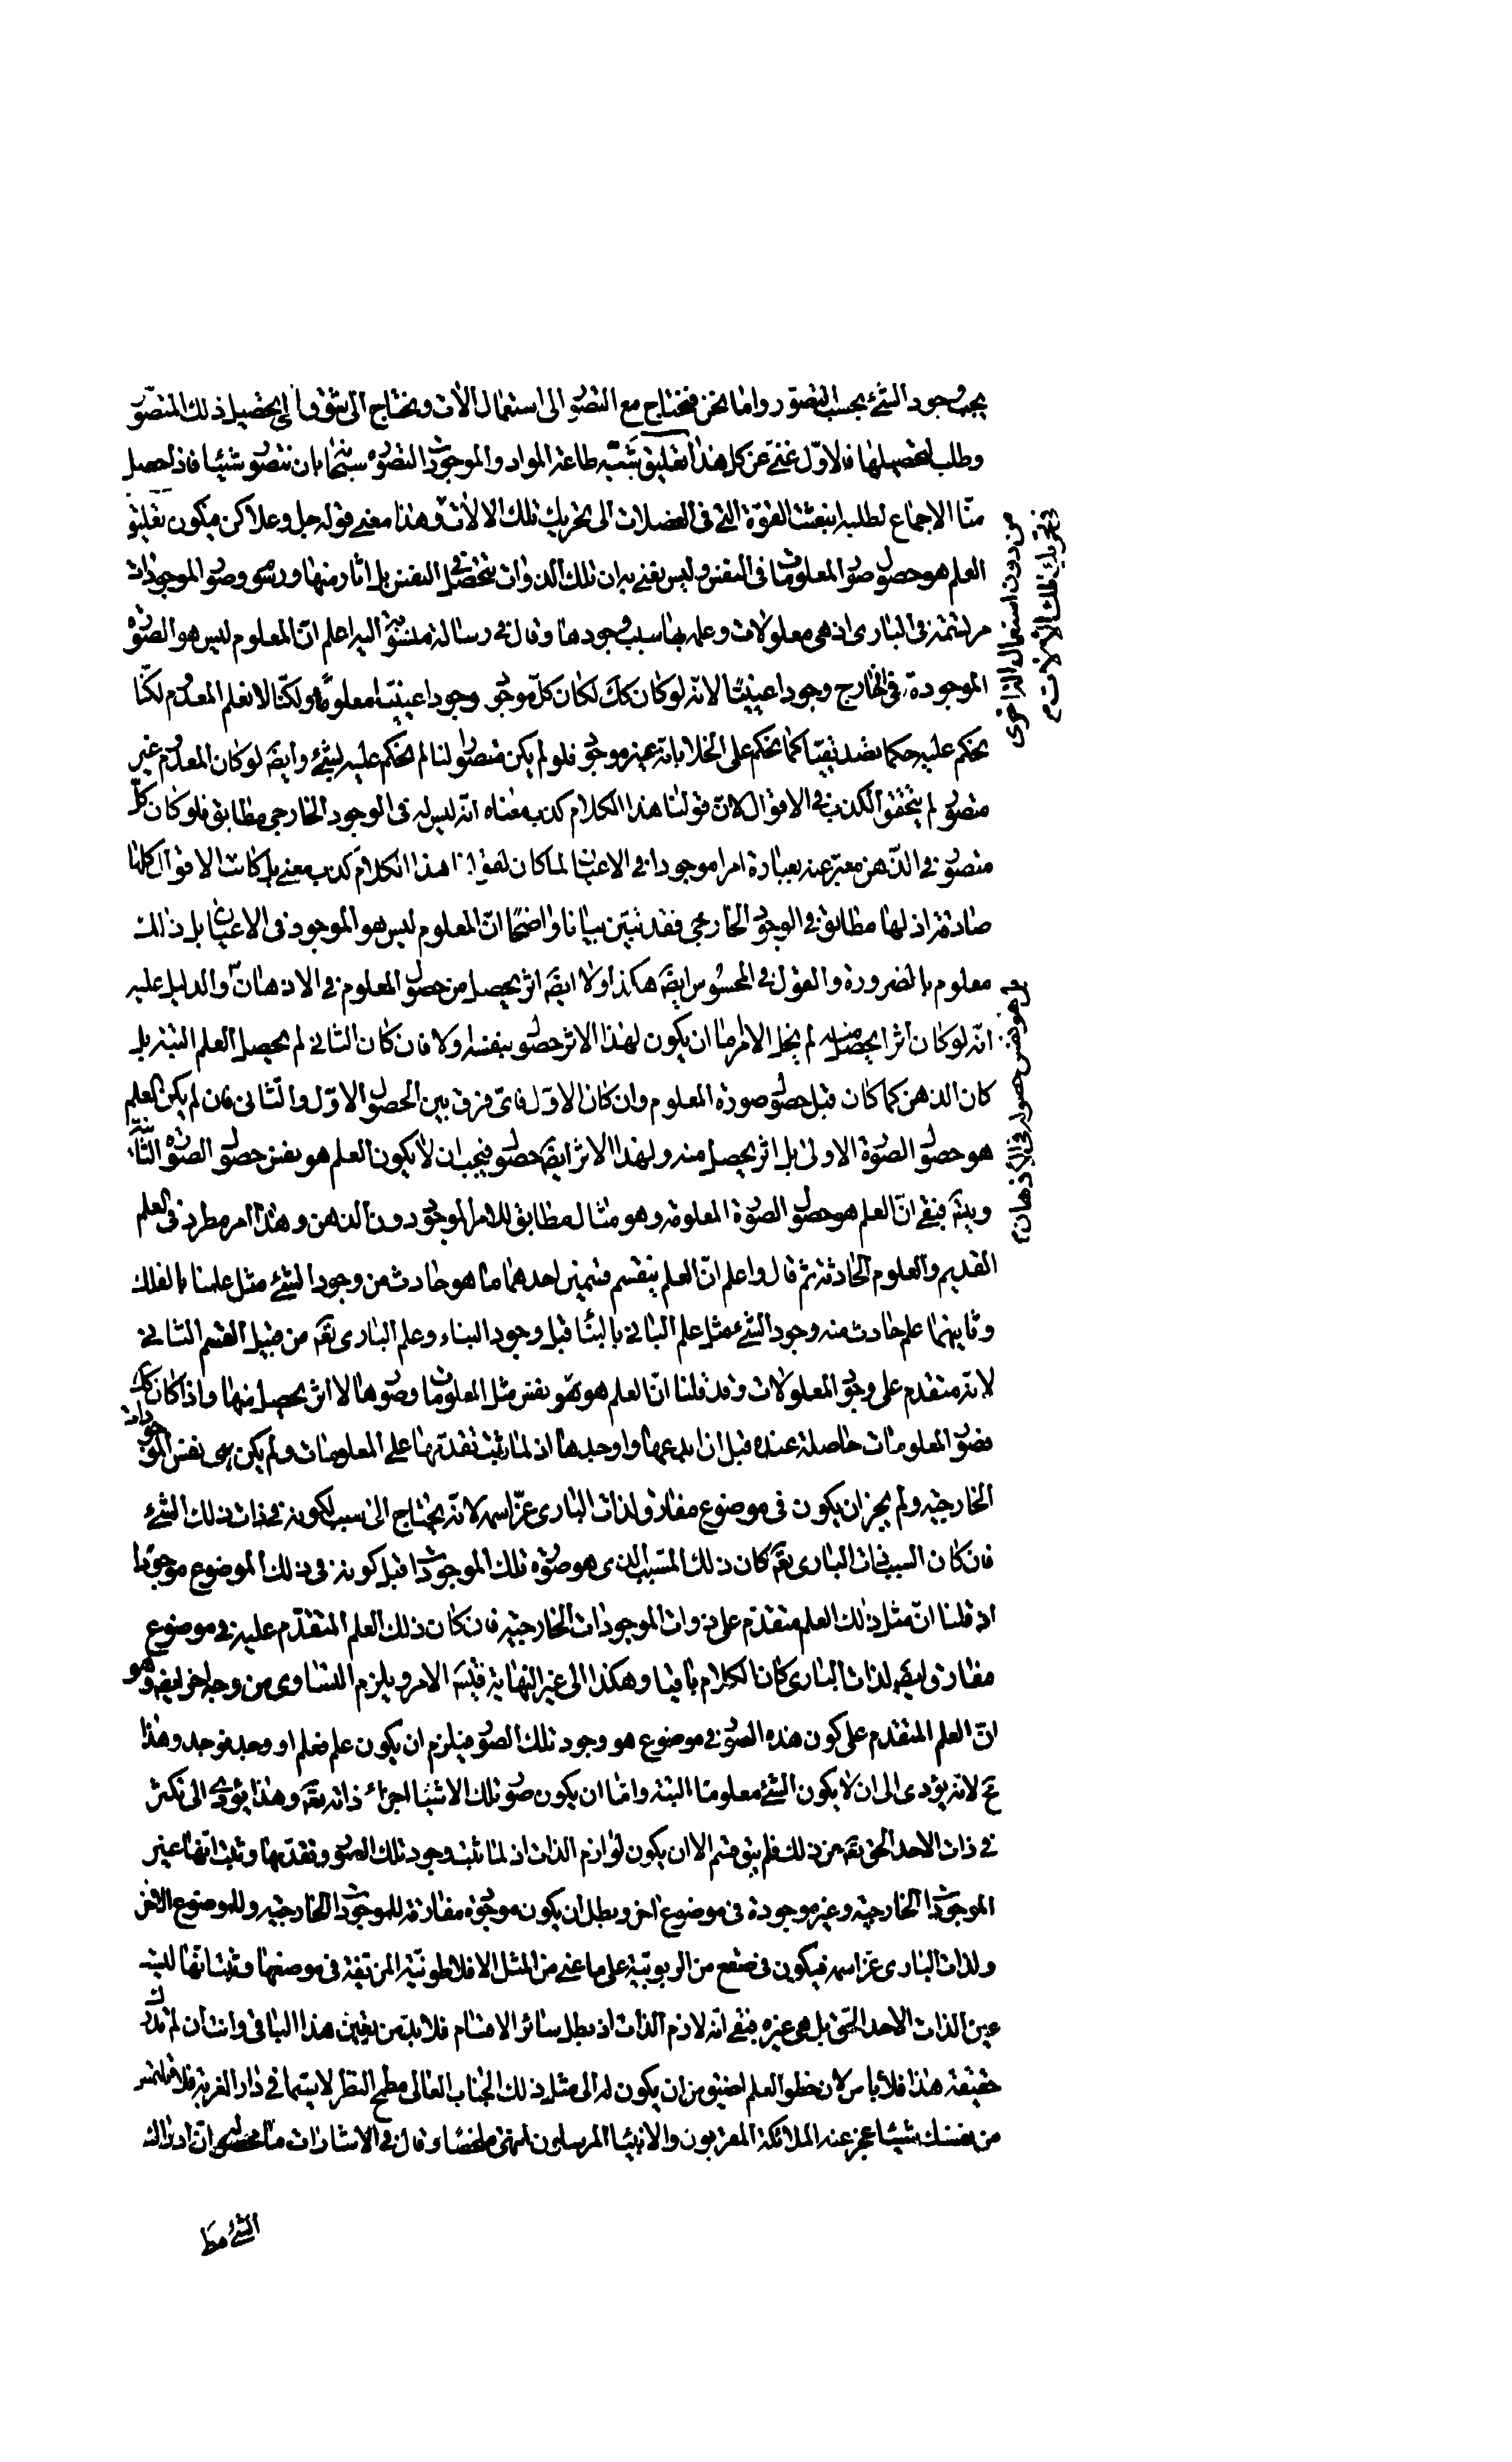 يجب وجود الشئ بحسب التصور واما نحن فنحتاج مع التصوّ الى استعمال الآت ونحتاج الى شوق الى تحصيل ذلك المتصوّر
وطلب لتحصيلها فالاوّل غنىّ عن كل هذا تعليق شبّه طاعة المواد والموجودات لتصوّره سبحانه بان نتصوّر شيئا فاذا حصل
منّا الاجماع لطلبه انبعثت القوّة التى فى العضلات الى تحريك تلك الالات وهذا معنى قوله جل وعلا كن فيكون تعليق
العلم هو حصول صوَر المعلومات فى النفس وليس يعنى به ان تلك الذوات تحصل فى النفس بل اثار منها ورسوم وصور الموجودات
مرتسمة فى البارى اذ هى معلولات وعلمه بها سبب وجودها وقال فى رسالة منسوبة اليه اعلم انّ المعلوم ليس هو الصورة
الموجودة فى الخارج وجودا عينيّا لانّه لو كان كك لكان كلّ موجود وجودا عينيّا معلومًا ولكنّا لا نعلم المعدوم لكنّا
نحكم عليه حكما تصديقيّا كما نحكم على الخلا بانّه غير موجود فلو لم يكن متصوّرا لنا لم نحكم عليه بشئ وايضَه لو كان المعدوم غير
متصوّر لم يتحقق الكذب فى الاقوال لانّ قولنا هذا الكلام كذب معناه انّه ليس له فى الوجود الخارجى مطابق فلو كان كلّ
متصوّر فى الذّهن معبّر عنه بعبارة امرا موجودا فى الاعيان لما كان لقولنا هذا الكلام كذب معنى بل كانت الاقوال كلها
صادقة اذ لها مطابق فى الوجود الخارجى فقد تبيّن بيانا واضحًا انّ المعلوم ليس هو الموجود فى الاعيان بل ذالك
معلوم بالضرورة والقول فى المحسوس ايضَه هكذا ولا ايضَه اثر يحصل من حصول المعلوم فى الاذهان والدليل عليه
انّه لو كان اثرا يحصل منه لم يخل الامر اما ان يكون لهذا الاثر حصول بنفسه اولا فان كان الثانى لم يحصل العلم البتة بل
كان الذهن كما كان قبل حصول صورة المعلوم وان كان الاوّل فاىّ فرق بين الحصول الاوّل والثّانى فان لم يكن العلم
هو حصول الصورة الاولى بل اثر يحصل منه ولهذا الاثر ايضَه حصول فيجب ان لا يكون العلم هو نفس حصول الصورة الثّانية
فيبقى انّ العلم هو حصول الصورة المعلومة وهو مثال مطابق للامر الموجود دون الذهن وهذا امر مطرد فى العلم
القديم والعلوم الحادثة ثم قال واعلم انّ العلم ينقسم قسمين احدهما ما هو حادث من وجود الشئ مثل علمنا بالفلك
وثانيهما علم حادث منه وجود الشئ مثل علم البانى بالبنّا قبل وجود البناء وعلم البارى تعَه من قبيل القسم الثانى
لانّه متقدم على وجود المعلولات وقد قلنا انّ العلم هو نفس مثل المعلومات وصورها لا اثر يحصل منها واذا كان كك
فصور المعلومات حاصلة عنده قبل ان ابدعها واوجدها اذ لما ثبت تقدّمها على المعلومات ولم يكن هى نفس الموجودات
الخارجيّه ولم يجز ان يكون فى موضوع مفارق لذات البارى عزّ اسمه لانّه يحتاج الى سبب لكونه فى ذات ذلك الشئ
فان كان السبب ذات البارى تعَه كان ذلك المسبب الذى هو صورة تلك الموجودات قبل كونه فى ذلك الموضوع موجودا
اذ قلنا انّ مثل ذلك العلم متقدّم على ذوات الموجودات الخارجيّه فان كان ذلك العلم المتقدّم عليه فى موضوع
مفارق لذات البارى كان الكلام باقيا وهكذا الى غير النهاية الامر ويلزم التساوى من وجه اخر ايضَه وهو
انّ العلم المتقدم على كون هذه الصور فى موضوع هو وجود تلك الصور فيلزم ان يكون علم فعلم او وجد فوجد وهذا
مح لانّه يؤدى الى ان لا يكون الشئ معلوما البتة واما ان يكون صور تلك الاشيا اجزاء ذاته تعَه وهذا يؤدى الى تكثر
فى ذات الاحد الحق تعَه عن ذلك فلم يبق قسم الا ان يكون لوازم الذات اذ لما ثبت وجود تلك الصور وتقدّمها وثبت انّها غير
الموجودات الخارجيّه وغير موجودة فى موضوع اخر وبطل ان يكون موجودة مفارقة للموجودات الخارجيّه وللموضوع الاخر
ولذات البارى عزّ اسمه فيكون فى صقع من الربوبيّة على ما عنى من المثل الافلاطونيّة المزيّفة فى موضعها وثبت انّها ليست
عين الذات الاحد الحق بل هى غيره فبقى انّه لازم الذات اذ بطل سائر الاقسام فلا بدّ من تعيّن هذا الباقى وانت ان لم تدرك
حقيقة هذا فلا باس لان خطو العلم اضيق من ان يكون له الى مثل ذلك الجناب العالى مطمح النظر لا سيّما فى دار الغربة فلا تلتمس
من نفسك شيئا عجز عنه الملائكة المقربون والانبياء المرسلون انتهى ملخصًا وقال فى الاشارات ما محصله ان ادراك
الشئ
فى تحريك تلك الآلات م
من دون استعمال آلة اخرى
هو نفس حصوله فى الاذهان م